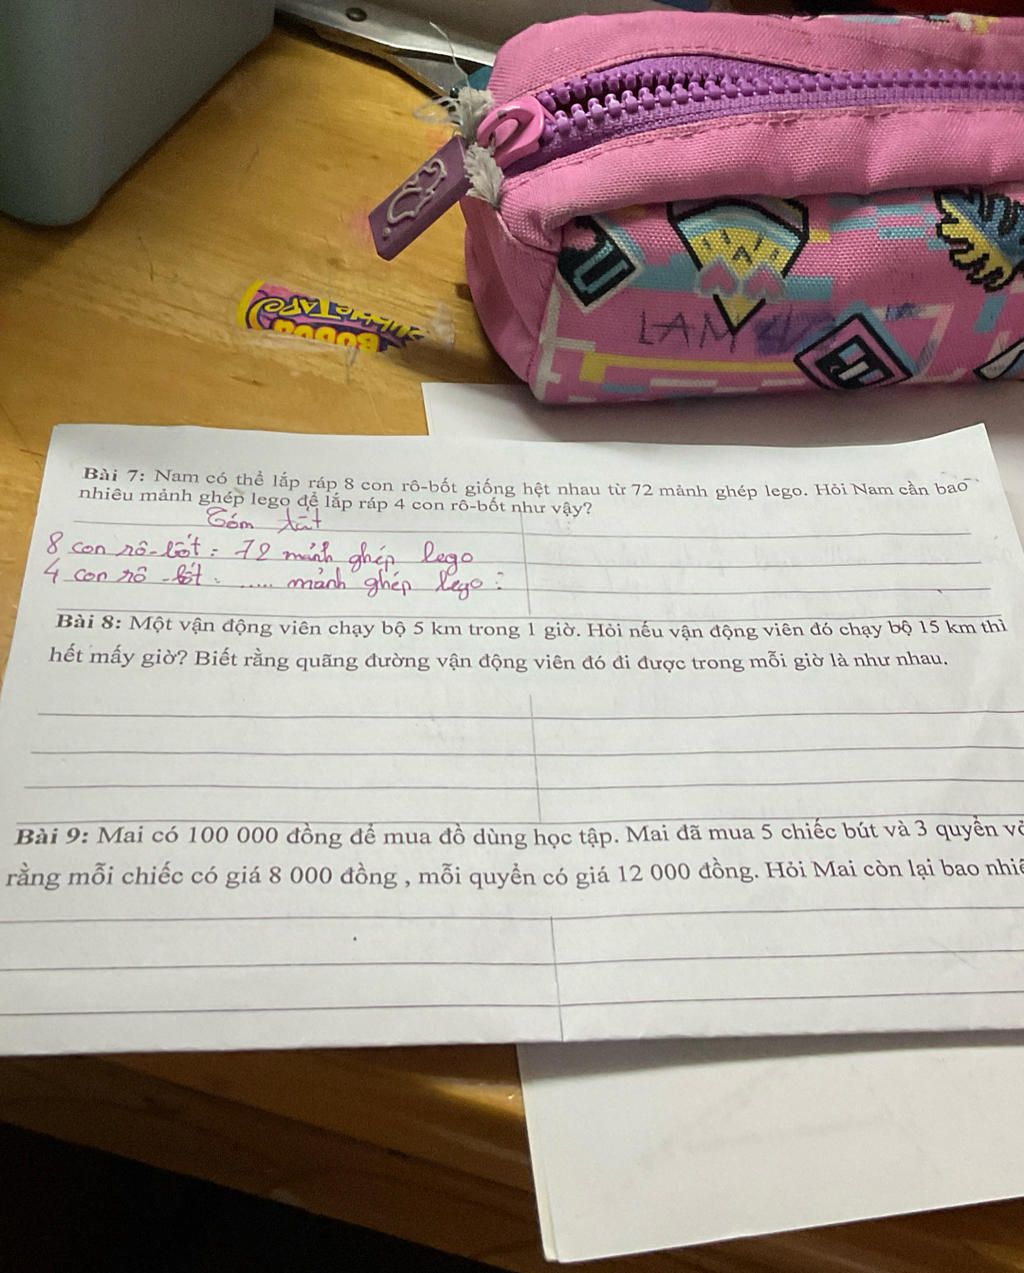 LAM
Bài 7: Nam có thể lắp ráp 8 con rô-bốt giống hệt nhau từ 72 mảnh ghép lego. Hỏi Nam cần bao
nhiêu mảnh ghép lego để lắp ráp 4 con rô-bốt như vậy?
Tóm tắt
8 con rô-bốt: 72 mảnh ghép lego
4 con rô-bốt: ..... mảnh ghép lego?
Bài 8: Một vận động viên chạy bộ 5 km trong 1 giờ. Hỏi nếu vận động viên đó chạy bộ 15 km thì
hết mấy giờ? Biết rằng quãng đường vận động viên đó đi được trong mỗi giờ là như nhau.
Bài 9: Mai có 100 000 đồng để mua đồ dùng học tập. Mai đã mua 5 chiếc bút và 3 quyển
rằng mỗi chiếc có giá 8 000 đồng , mỗi quyển có giá 12 000 đồng. Hỏi Mai còn lại bao